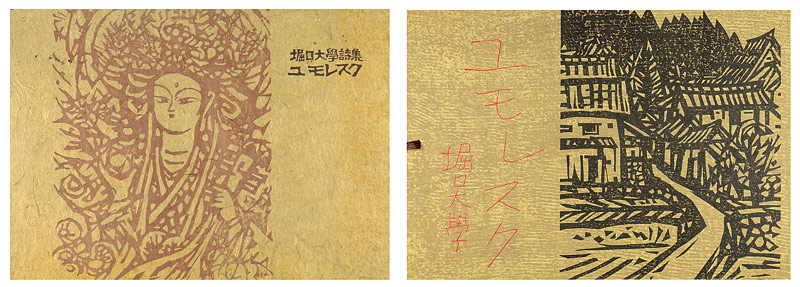 堀口大學詩集
ユモレスク
ユモレスク
堀口大學